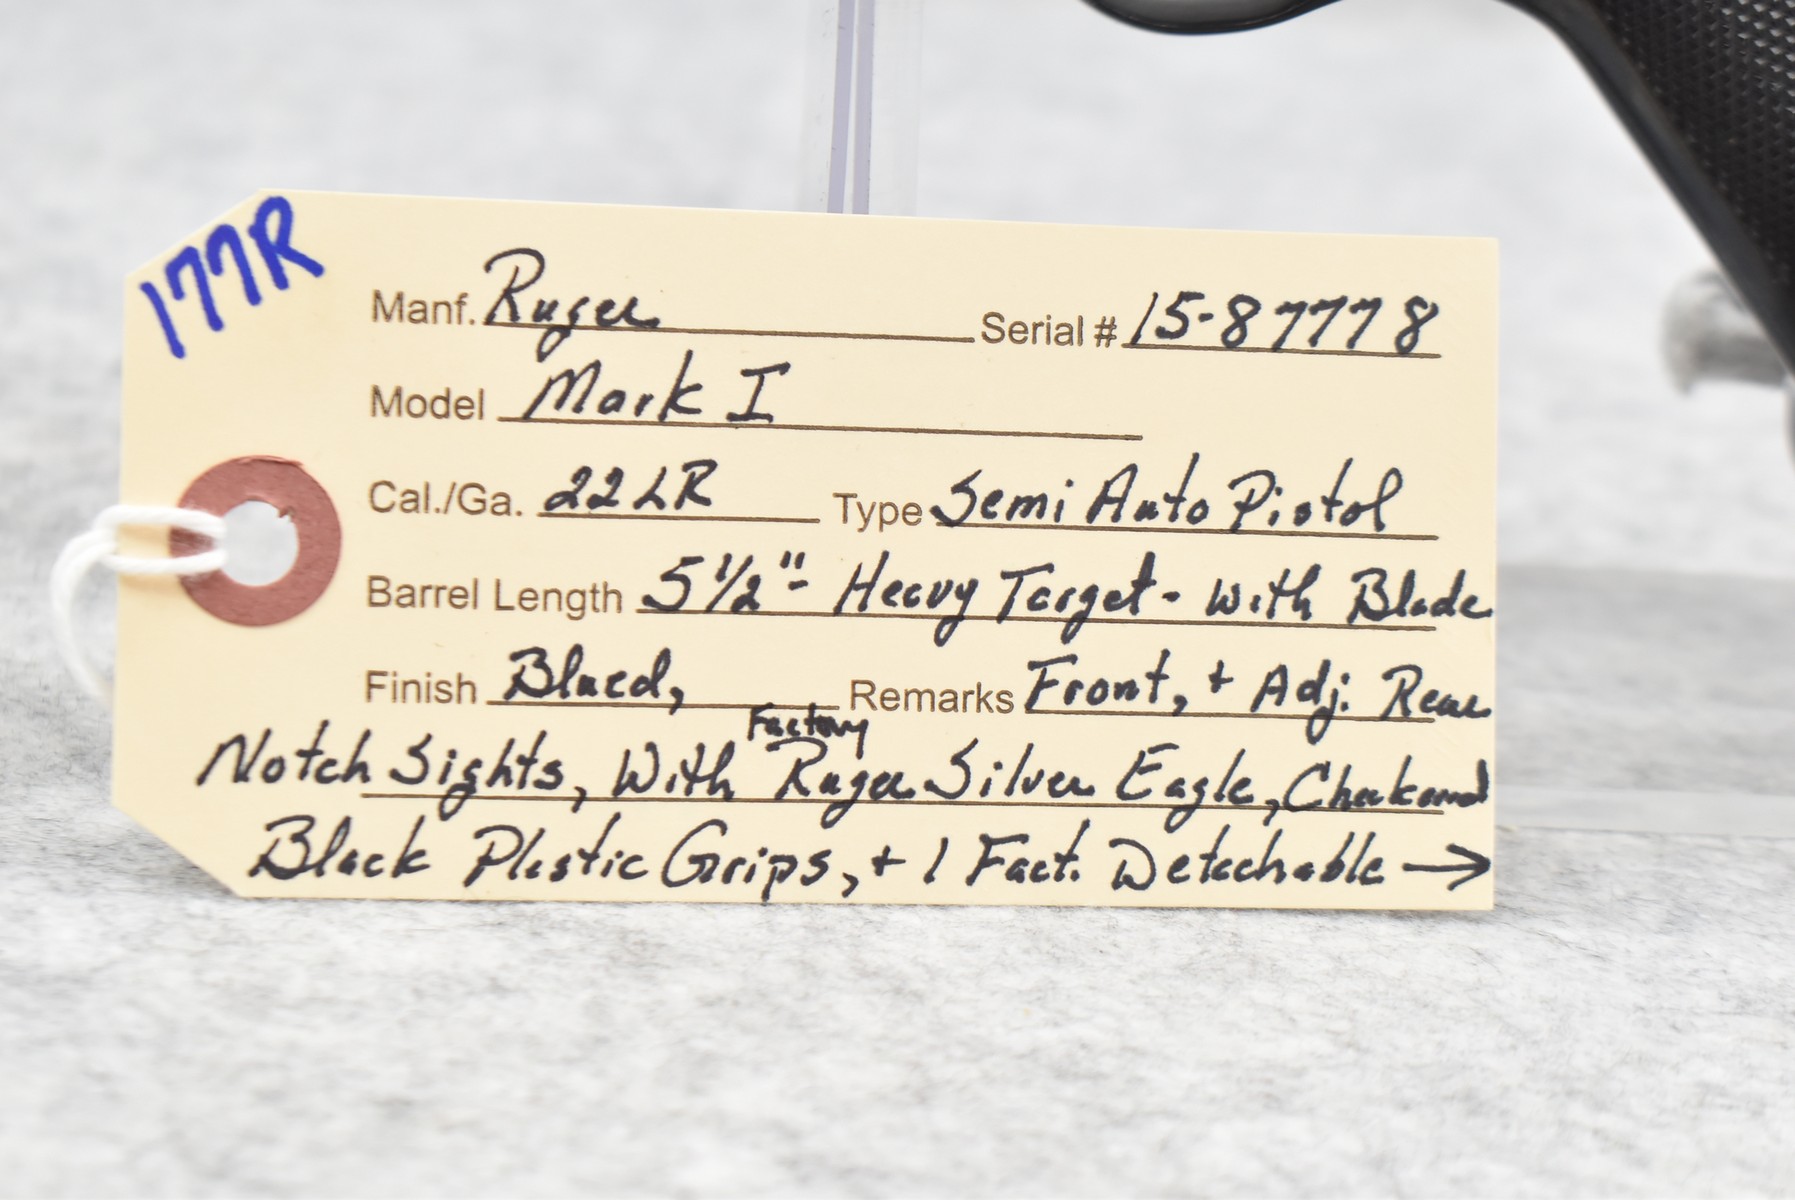 177R
Manf. Ruger Serial # 15-87778
Model Mark I
Cal./Ga. 22LR Type Semi Auto Pistol
Barrel Length 5 1/2" - Heavy Target - with Blade
Finish Blued, Remarks Front, + Adj. Rear
Factory
Notch Sights, With Ruger Silver Eagle, Checkered
Black Plastic Grips, + 1 Fact. Detachable →